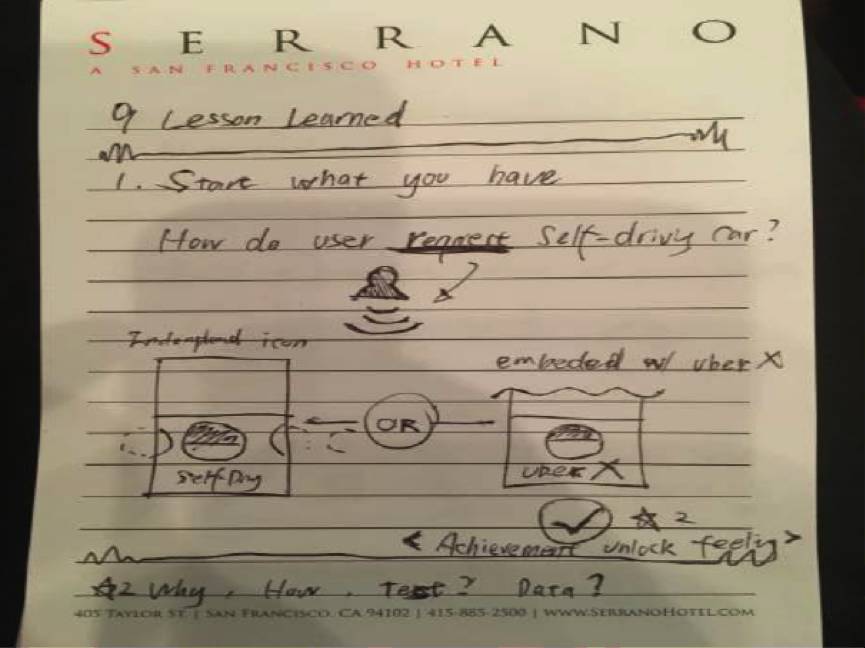 SERRANO
A SAN FRANCISCO HOTEL
9 Lesson Learned
1. Start what you have
How do user request Self-drivig car?
embeded w/ uber X
icon
OR
Self-Dry
uber X
☆ 2
< Achievement unlock feelig >
☆2 Why, How, Test? Data?
405 TAYLOR ST. | SAN FRANCISCO, CA 94102 | 415-885-2500 | WWW.SERRANOHOTEL.COM